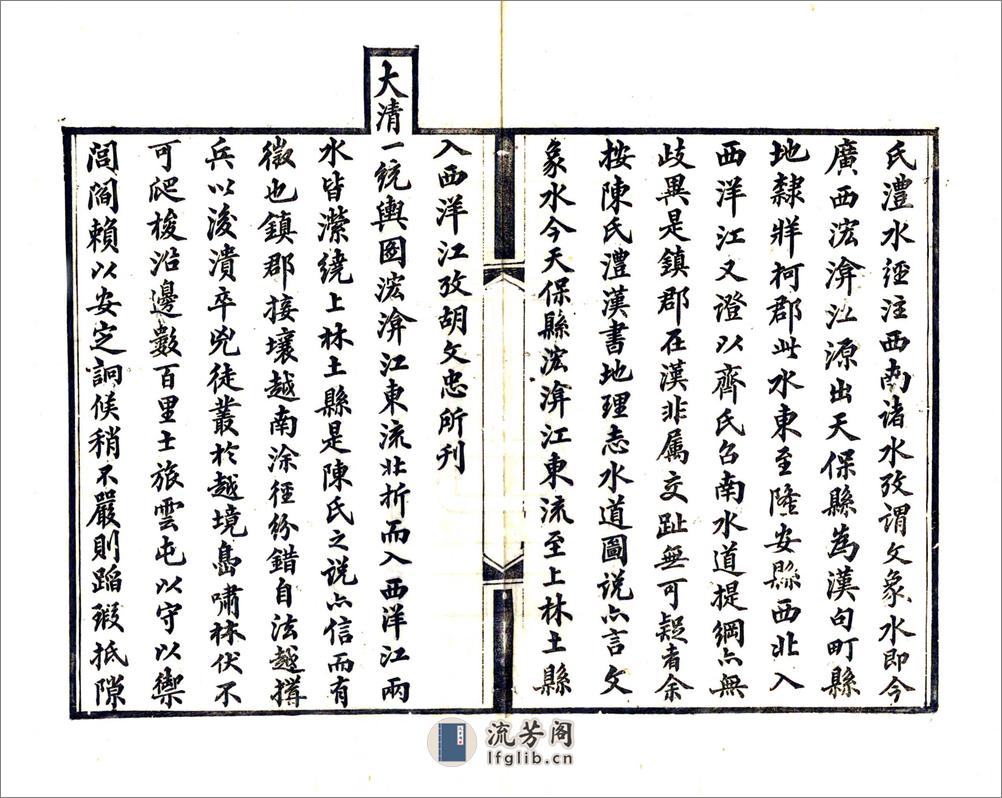 氏澧水經注西南諸水攷謂文象水即今
廣西浤渰江源出天保縣為漢句町縣
地隸牂柯郡此水東至隆安縣西北入
西洋江又證以齊氏召南水道提綱亦無
歧異是鎮郡在漢非屬交趾無可疑者余
按陳氏澧漢書地理志水道圖說亦言文
象水今天保縣浤渰江東流至上林土縣
入西洋江攷胡文忠所刊
大清一統輿圖浤渰江東流北折而入西洋江兩
水皆瀠繞上林土縣是陳氏之說亦信而有
徵也鎮郡接壤越南涂徑紛錯自法越搆
兵以後潰卒兇徒叢於越境嵒嘯林伏不
可爬梭沿邊數百里士旅雲屯以守以禦
閭閻賴以安定詗候稍不嚴則蹈瑕抵隙
流芳阁
lfglib.cn